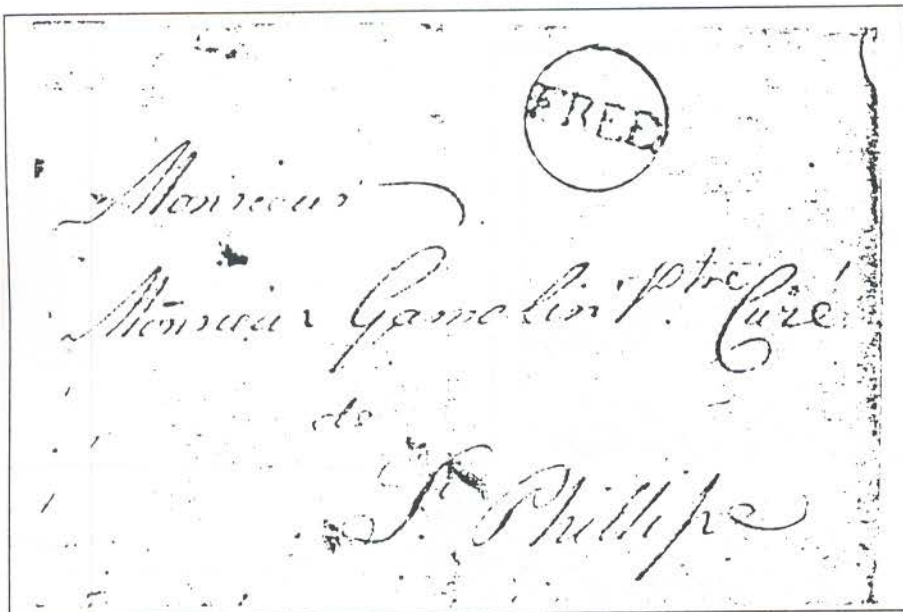 FREE
Monsieur
Monsieur Gamelin Ptre Curé
de
St Phillipe